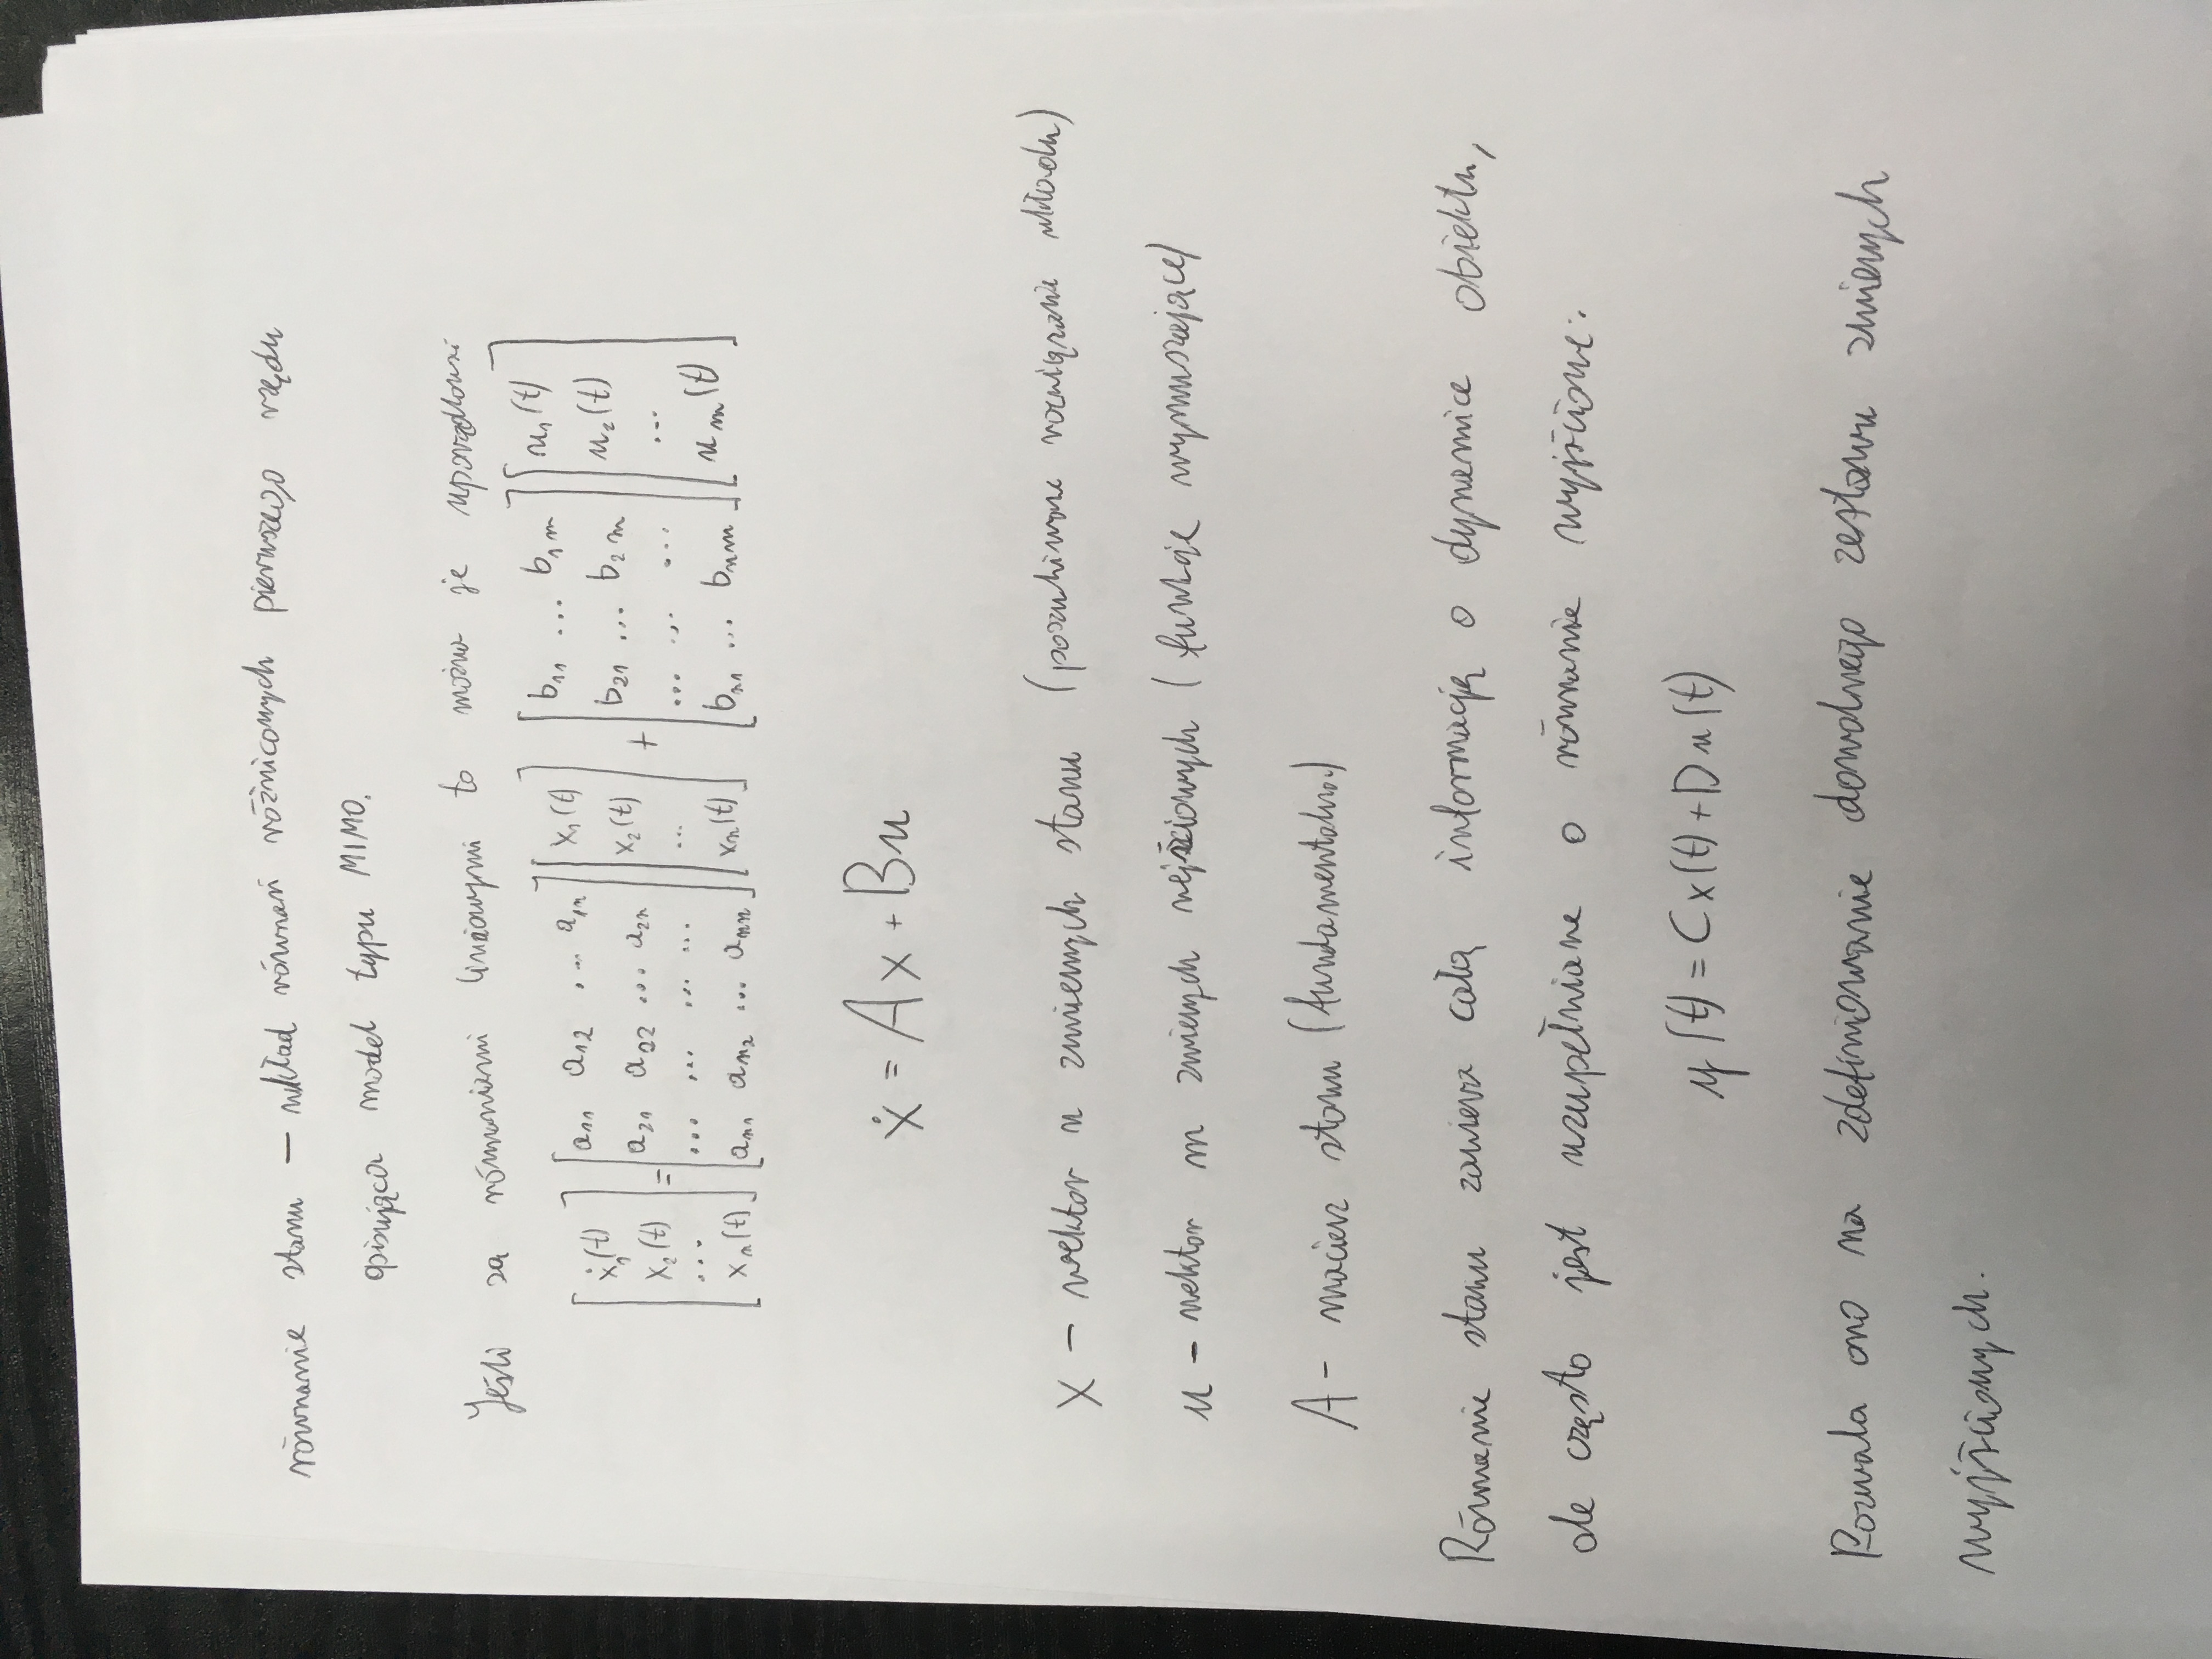 równanie stanu — układ równań różnicowych pierwszego rzędu
opisująca model typu MIMO.
Jeśli są równaniami liniowymi to można je uporządkować
[ẋ₁(t) x₂(t) ... xₙ(t)] = [a₁₁ a₁₂ ... a₁ₙ a₂₁ a₂₂ ... a₂ₙ ... ... ... ... aₙ₁ aₙ₂ ... aₙₙ] [x₁(t) x₂(t) ... xₙ(t)] + [b₁₁ ... b₁ₘ b₂₁ ... b₂ₘ ... ... ... bₙ₁ ... bₙₘ] [u₁(t) u₂(t) ... uₘ(t)]
ẋ = Ax + Bu
X – wektor n zmiennych stanu (poszukiwane rozwiązanie układu)
u – wektor m zmienych wejściowych (funkcje wymuszające)
A – macierz stanu (fundamentalna)
Równanie stanu zawiera całą informację o dynamice obiektu,
ale często jest uzupełniane o równanie wyjściowe:
y(t) = Cx(t) + Du(t)
Pozwala ono na zdefiniowanie dowolnego zestawu zmienych
wyjściowych.